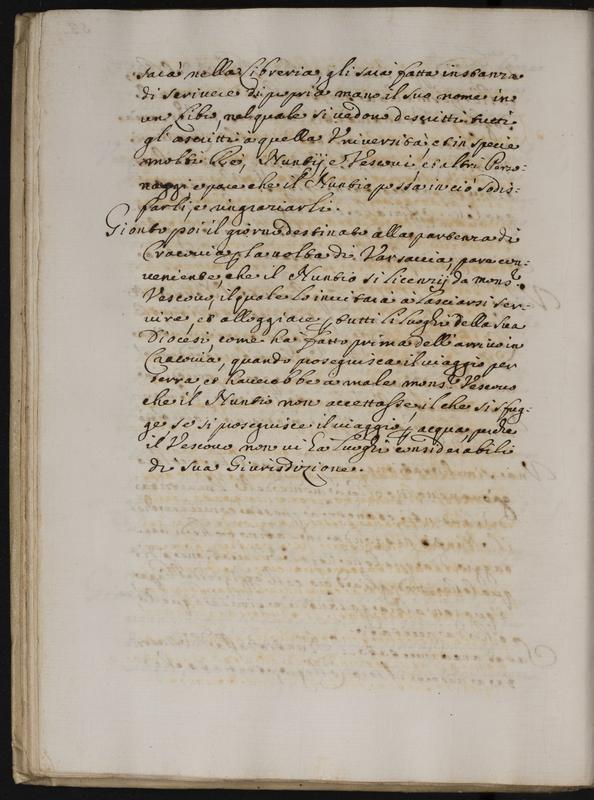 sarà nella libreria, gli sarà fatta instanza
di scrivere di propria mano il suo nome in
un libro nel quale si vedono descritti tutti
gl'ascritti à quella Università et in specie
molti Rè, Nuntij, e Vescovi, et altri Perso-
naggi e pare che il Nuntio possa in ciò sodis-
farli, e ringratiarli.
Gionto poi il giorno destinato alla partenza di
Cracovia p la volta di Varsavia, pare con-
veniente, che il Nuntio si licenzij da mons.r
Vescovo, il quale lo invitarà à lasciarsi ser-
vire, et alloggiare p tutti li luoghi della sua
Diocesi come hà fatto prima dell'arrivo in
Cracovia, quando proseguisca il viaggio per
terra et haverebbe à male mons.r Vescovo
che il Nuntio non accettasse, il che si sfug-
ge se si proseguisce il viaggio p acqua, perche
il Vescovo non vi hà luoghi considerabili
di sua Giurisdizione.